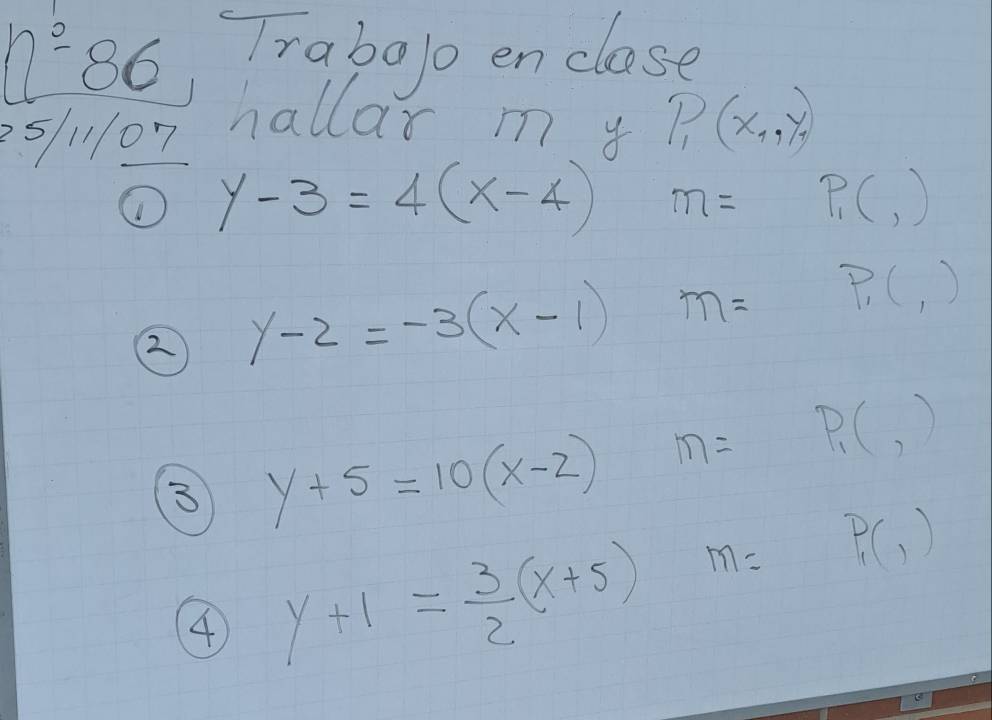 nº 86 Trabajo en clase
25/11/07 hallar m y P₁(x₁, y₁)
① y-3 = 4(x-4) m= P₁( , )
② y-2 = -3(x-1) m= P₁( , )
③ y+5 = 10(x-2) m= P₁( , )
④ y+1 = 3/2 (x+5) m= P₁( , )